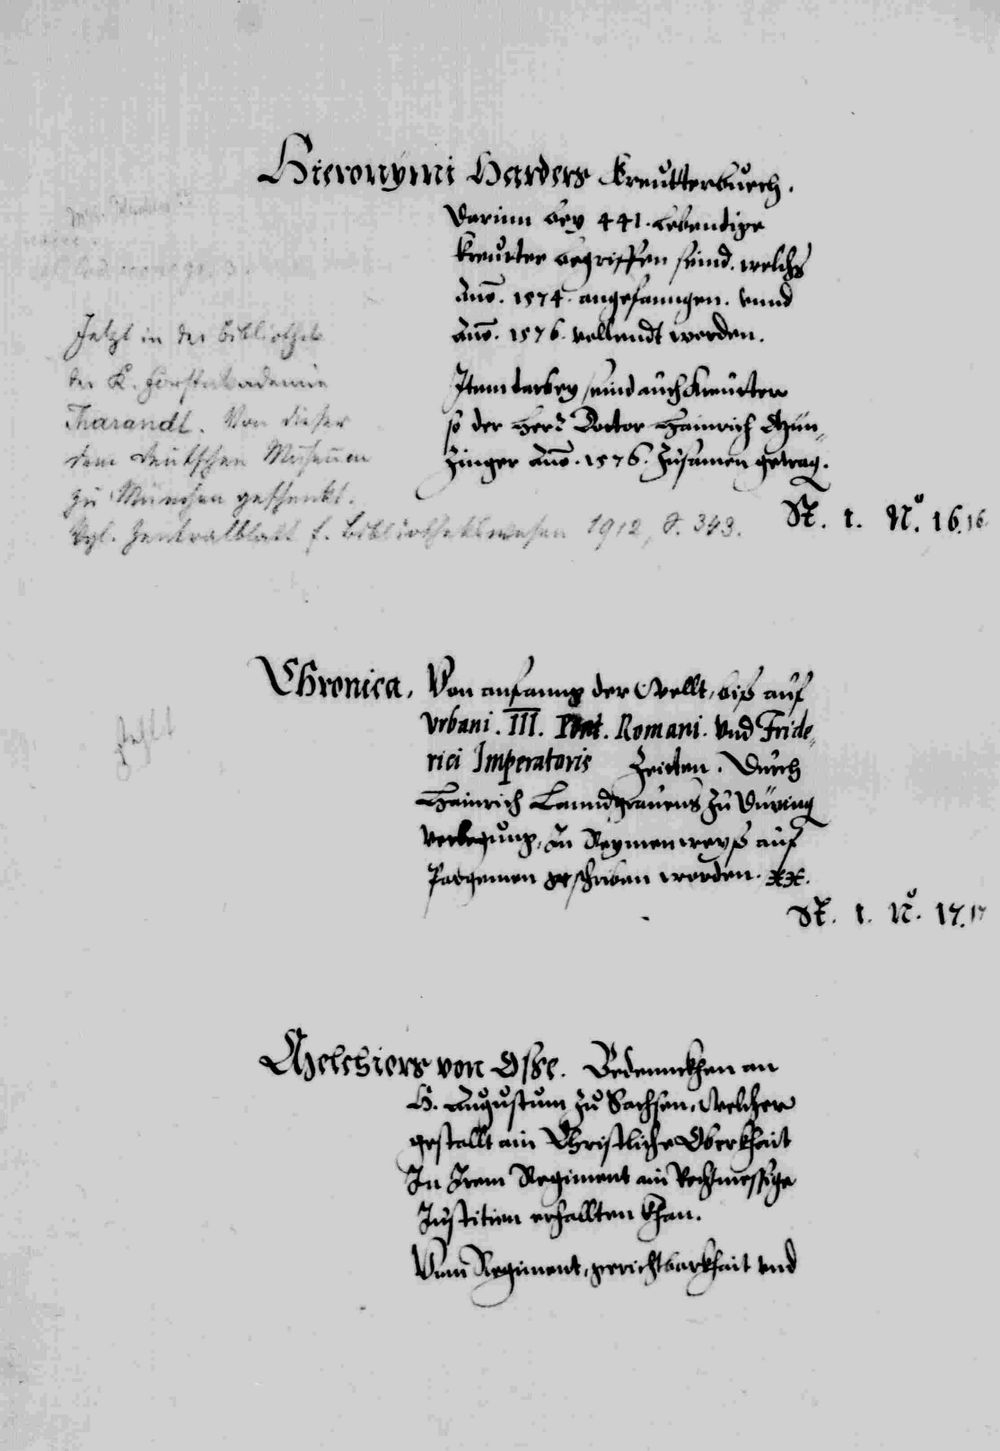 Hieronymi Harders Kreütterbuech.
Darinn bey 441. Lebendige
Kreütter begriffen seind. welche
Anno. 1574. angefanngen. vnnd
Anno. 1576. vollendt worden.
Item darbey seind aüch Kreütter
so der Herr Doctor Hainrich Mün-
zinger Anno. 1576. Züsamen getrag.
St. 1. No. 16. 16
Jetzt in der Bibliothek
der K. Forstakademie
Tharandt. Von dieser
dem Deutschen Museum
zu München geschenkt.
Vgl. Zentralblatt f. Bibliothekswesen 1912, S. 343.
Chronica, Von anfanng der Wellt, biß aüf
Vrbani. III. Pont. Romani. Vnd Fride-
rici Imperatoris Zeiten. Dürch
Hainrich Lanndgrauens zü Düring
verlegung, In Reymenweyß aüf
Pargemen geschriben worden. xx.
St. 1. No. 17. 17
fehlt
Melchiors von Osse. Bedennckhen an
H. Augustum zu Sachsen, Welcher
gestallt ain Christliche Oberkhait
In Irem Regiment ain Rechtmessige
Justitien erhallten khan.
Vom Regiment, gerichtbarkhait vnd